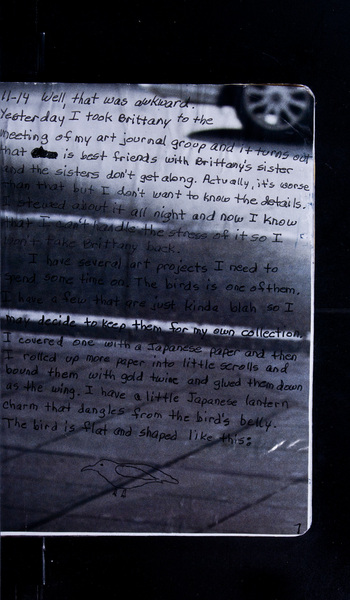 11-14 Well, that was awkward.
Yesterday I took Brittany to the
meeting of my art journal group and it turns out
that is best friends with Brittany's sister
and the sisters don't get along. Actually, it's worse
than that but I don't want to know the details.
I stewed about it all night and now I know
that I can't handle the stress of it so I
won't take Brittany back.
I have several art projects I need to
spend some time on. The birds is one of them.
I have a few that are just kinda blah so I
may decide to keep them for my own collection.
I covered one with a Japanese paper and then
I rolled up more paper into little scrolls and
bound them with gold twine and glued them down
as the wing. I have a little Japanese lantern
charm that dangles from the bird's belly.
The bird is flat and shaped like this:
7